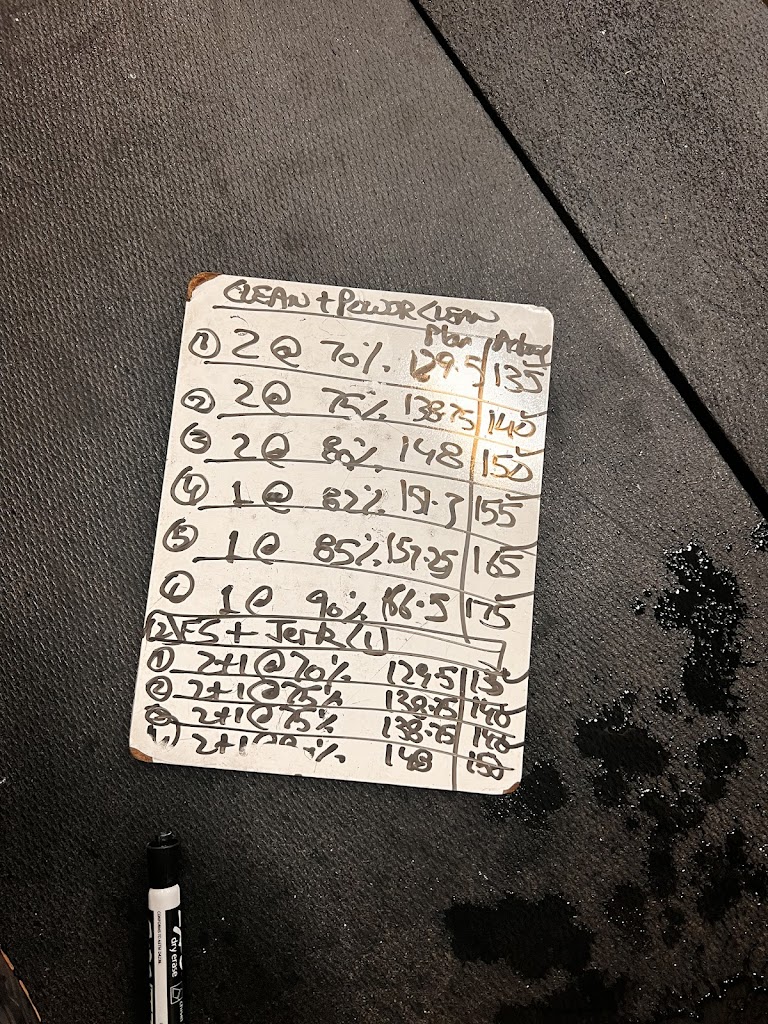 CLEAN + POWER CLEAN
Plan Actual
① 2 @ 70% 129.5 135
② 2@ 75% 138.75 140
③ 2@ 80% 148 150
④ 1@ 82% 151.7 155
⑤ 1@ 85% 157.25 165
⑥ 1@ 90% 166.5 175
(2) FS + Jerk (1)
① 2+1@70% 129.5 135
② 2+1@75% 138.75 140
③ 2+1@75% 138.75 140
2+1 % 148 150
dry erase